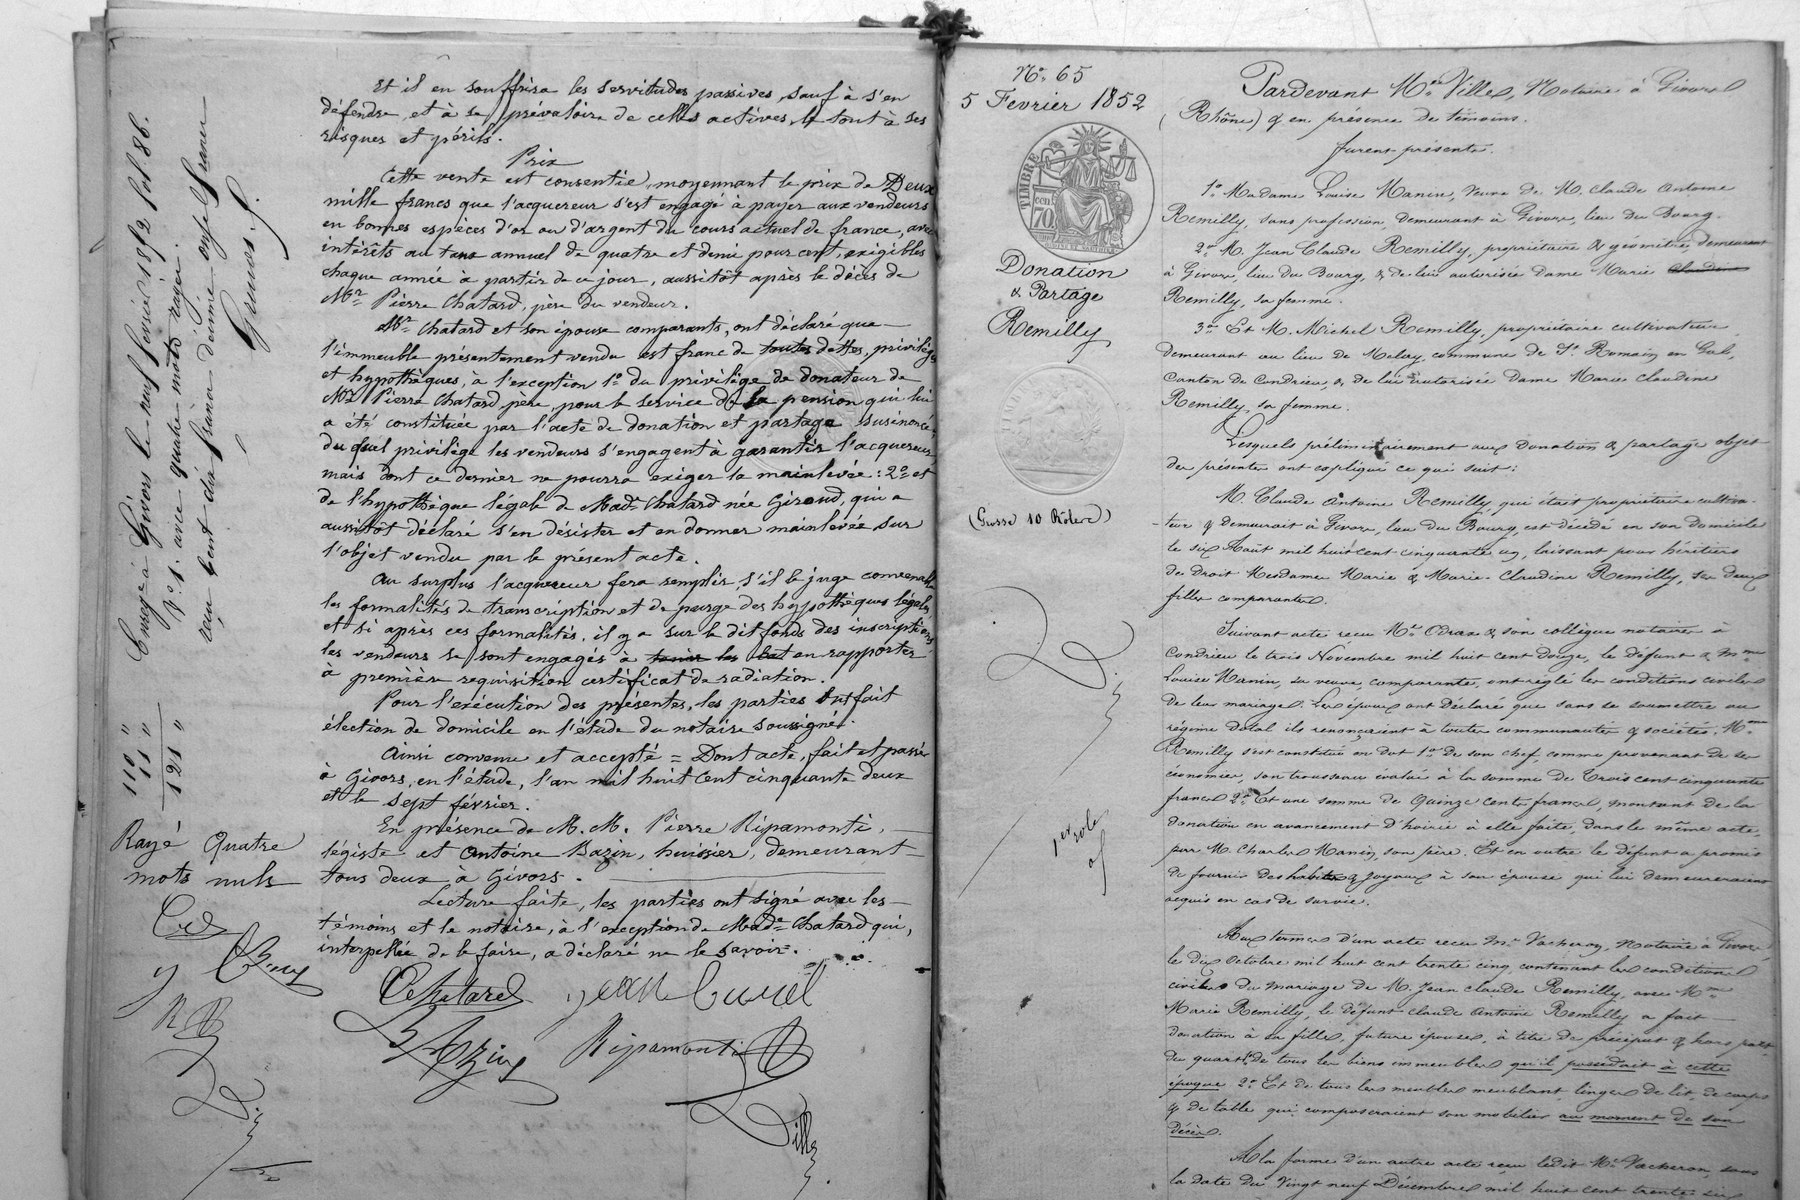 Et il en souffrira les servitudes passives, sauf à s'en
défendre, et à se prévaloir de celles actives, le tout à ses
risques et périls.
Prix
Cette vente est consentie, moyennant le prix de Deux
mille francs que l'acquereur s'est engagé à payer aux vendeurs
en bonnes espèces d'or ou d'argent du cours actuel de france, avec
intérêts au taux annuel de quatre et demi pour cent, exigibles
chaque année à partir de ce jour, aussitôt après le décès de
Mr Pierre Chatard, père du vendeur.
Mr Chatard et son épouse comparants, ont déclaré que
l'immeuble présentement vendu est franc de toutes dettes, privilèges
et hypothèques, à l'exception 1o du privilège de donateur de
Mr Pierre Chatard père, pour le service de la pension qui lui
a été constituée par l'acte de donation et partage susénoncé,
du quel privilège les vendeurs s'engagent à garantir l'acquereur
mais dont ce dernier ne pourra exiger la mainlevée : 2o et
de l'hypothèque légale de Made Chatard née Giroud, qui a
aussitôt déclaré s'en désister et en donner mainlevée sur
l'objet vendu par le présent acte.
Au surplus l'acquereur fera remplir, s'il le juge convenable
les formalités de transcription et de purge des hypothèques légales
et si après ces formalités, il y a sur le dit fonds des inscriptions,
les vendeurs se sont engagés à en rapporter
à première requisition certificat de radiation.
Pour l'exécution des présentes, les parties ont fait
élection de domicile en l'étude du notaire soussigné.
Ainsi convenu et accepté = Dont acte, fait et passé
à Givors, en l'étude, l'an mil huit cent cinquante deux
et le sept février.
En présence de M. M. Pierre Ripamonti,
légiste et Antoine Bazin, huissier, demeurant
tous deux a Givors.
Lecture faite, les parties ont signé avec les
témoins et le notaire, à l'exception de Made Chatard qui,
interpellée de le faire, a déclaré ne le savoir.
Chatard
Jean
Bazin
Ripamonti
Ville
Enregé à Givors le neuf février 1852 fol 86.
No 1. avec quatre mots rayés.
reçu cent dix francs décime onze francs
110 "
11 "
121 "
Rayé quatre
mots nuls
No 65
5 Fevrier 1852
TIMBRE
70
Donation
& Partage
Remilly
(Grosse 10 Roles)
1er role
Pardevant Me Ville, Notaire à Givors
(Rhône) & en présence de témoins.
furent présents.
1o Madame Louise Manin, veuve de M. Claude Antoine
Remilly, sans profession, demeurant à Givors, lieu du Bourg.
2o M. Jean Claude Remilly, propriétaire & géomètre, demeurant
à Givors, lieu du Bourg, & de lui autorisée Dame Marie Claudine
Remilly, sa femme.
3o Et M. Michel Remilly, propriétaire cultivateur
demeurant au lieu de commune de St Romain en Gal,
Canton de Condrieu, & de lui autorisée Dame Marie Claudine
Remilly, sa femme.
Lesquels préliminairement aux donation & partage objet
des présentes ont expliqué ce qui suit :
M. Claude Antoine Remilly, qui était propriétaire cultiva-
-teur & demeurait à Givors, lieu du Bourg, est décédé en son domicile
le six Août mil huit cent cinquante un, laissant pour héritiers
de droit Mesdames Marie & Marie-Claudine Remilly, ses deux
filles comparantes.
Suivant acte recu Me & son collègue notaires à
Condrieu le trois Novembre mil huit cent douze, le défunt & Mme
Louise Manin, sa veuve, comparante, ont réglé les conditions civiles
de leur mariage. Les époux ont déclaré que sans se soumettre au
régime dotal ils renonçaient à toute communauté & sociétés. Mme
Remilly s'est constitué en dot 1o de son chef, comme provenant de ses
économies, son trousseau évalué à la somme de Trois cent cinquante
francs 2o Et une somme de Quinze cents francs, montant de la
donation en avancement d'hoirie à elle faite, dans le même acte,
par M. Charles Manin, son père. Et en outre le défunt a promis
de fournir des habits & joyaux à son épouse qui lui demeureraient
acquis en cas de survie.
Aux termes d'un acte recu Me Vacheron, Notaire à Givors,
le dix Octobre mil huit cent trente cinq, contenant les conditions
civiles du mariage de M. Jean Claude Remilly, avec Mme
Marie Remilly, le défunt Claude Antoine Remilly a fait
donation à sa fille, future épouse, à titre de préciput & hors part
du quart 1o de tous les biens immeubles qu'il possédait à cette
époque 2o Et de tous les meubles meublant, linges de lit, de corps
& de table qui composeraient son mobilier au moment de son
décès.
A la forme d'un autre acte reçu ledit Me Vacheron, sous
la date du Vingt neuf Décembre mil huit cent trente